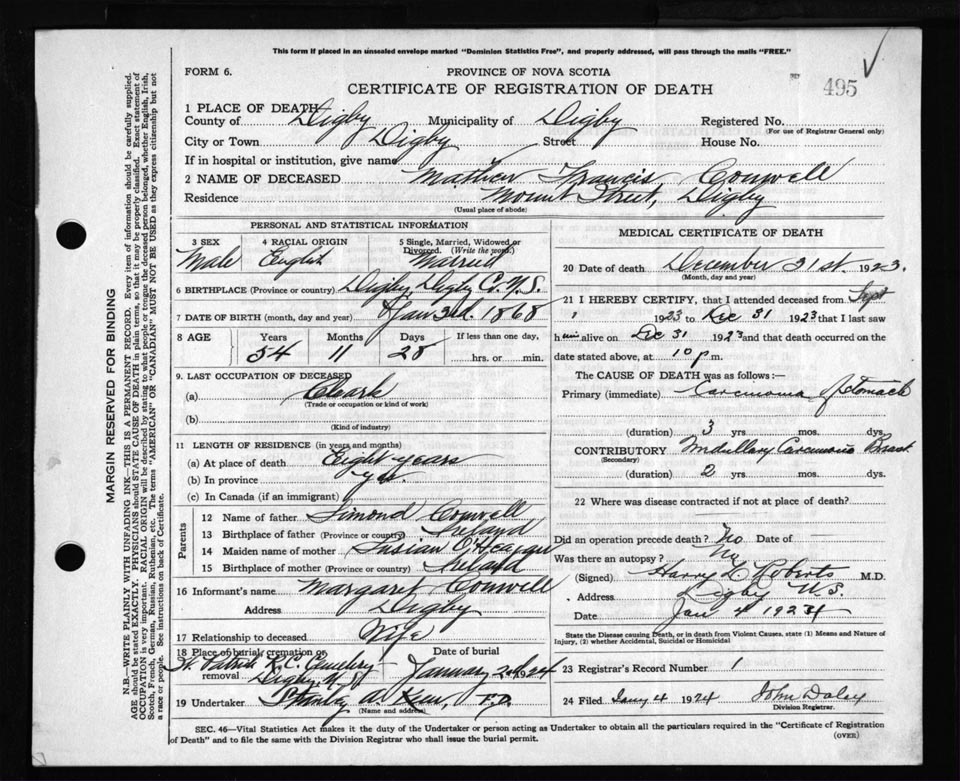 This form if placed in an unsealed envelope marked "Dominion Statistics Free", and properly addressed, will pass through the mails "FREE."
FORM 6.
PROVINCE OF NOVA SCOTIA
495
CERTIFICATE OF REGISTRATION OF DEATH
1 PLACE OF DEATH
County of Digby Municipality of Digby Registered No.
(For use of Registrar General only)
City or Town Digby Street House No.
If in hospital or institution, give name
2 NAME OF DECEASED Mathew Francis Conwell
Residence Mount Street, Digby
(Usual place of abode)
PERSONAL AND STATISTICAL INFORMATION
3 SEX 4 RACIAL ORIGIN 5 Single, Married, Widowed or Divorced. (Write the word)
Male English Married
6 BIRTHPLACE (Province or country) Digby, Digby Co. N.S.
7 DATE OF BIRTH (month, day and year) Jan 3rd. 1868
8 AGE Years Months Days If less than one day,
54 11 28 hrs. or min.
9. LAST OCCUPATION OF DECEASED
(a) Cleark
(Trade or occupation or kind of work)
(b)
(Kind of industry)
11 LENGTH OF RESIDENCE (in years and months)
(a) At place of death Eight years
(b) In province yes.
(c) In Canada (if an immigrant)
Parents
12 Name of father Simond Conwell
13 Birthplace of father (Province or country) Ireland
14 Maiden name of mother Susian
15 Birthplace of mother (Province or country) Ireland
16 Informant's name Margaret Conwell
Address Digby
17 Relationship to deceased Wife
18 Place of burial, cremation or removal Date of burial
St. Patrick R.C. Cemetery Digby, N.S. January 2nd 1924
19 Undertaker A.
(Name and address)
MEDICAL CERTIFICATE OF DEATH
20 Date of death December 31st. 1923.
(Month, day and year)
21 I HEREBY CERTIFY, that I attended deceased from Sept
" 1923 to Dec 31 1923 that I last saw
him alive on Dec 31 1923 and that death occurred on the
date stated above, at 10 p.m.
The CAUSE OF DEATH was as follows:—
Primary (immediate) Carcinoma of stomach
(duration) 3 yrs. mos. dys.
CONTRIBUTORY Medullary Carcinoma Breast
(Secondary)
(duration) 2 yrs. mos. dys.
22 Where was disease contracted if not at place of death?
Did an operation precede death? No Date of —
Was there an autopsy? No
(Signed) Harry L Roberts M.D.
Address Digby N.S.
Date Jan 4 1924
State the Disease causing Death, or in death from Violent Causes, state (1) Means and Nature of Injury, (2) whether Accidental, Suicidal or Homicidal
23 Registrar's Record Number 1
24 Filed Jany 4 1924 John Daley
Division Registrar.
SEC. 46—Vital Statistics Act makes it the duty of the Undertaker or person acting as Undertaker to obtain all the particulars required in the "Certificate of Registration
of Death" and to file the same with the Division Registrar who shall issue the burial permit.
(OVER)
MARGIN RESERVED FOR BINDING
N.B.—WRITE PLAINLY WITH UNFADING INK—THIS IS A PERMANENT RECORD. Every item of information should be carefully supplied.
AGE should be stated EXACTLY. PHYSICIANS should STATE CAUSE OF DEATH in plain terms, so that it may be properly classified. Exact statement of
OCCUPATION is very important. RACIAL ORIGIN will be described by stating to what people or tongue the deceased person belonged, whether English, Irish,
Scotch, French, German, Russian, Ruthenian, etc. The terms "AMERICAN" or "CANADIAN" MUST NOT BE USED as they express citizenship but not
a race or people. See instructions on back of Certificate.